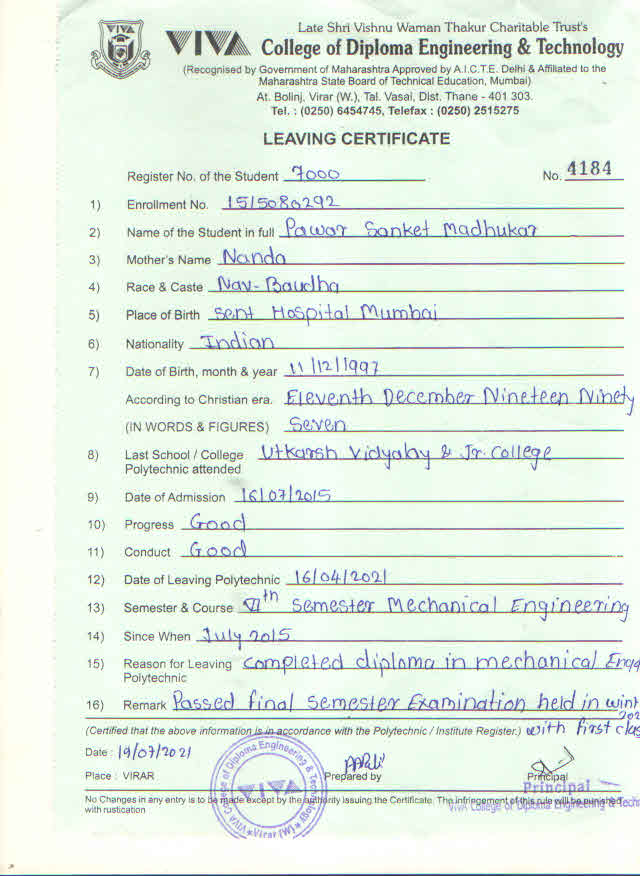 Late Shri Vishnu Waman Thakur Charitable Trust's
VIVA College of Diploma Engineering & Technology
(Recognised by Government of Maharashtra Approved by A.I.C.T.E. Delhi & Affiliated to the
Maharashtra State Board of Technical Education, Mumbai)
At. Bolinj, Virar (W.), Tal. Vasai, Dist. Thane - 401 303.
Tel. : (0250) 6454745, Telefax : (0250) 2515275
LEAVING CERTIFICATE
Register No. of the Student 7000 No. 4184
1) Enrollment No. 1515080292
2) Name of the Student in full Pawar Sanket Madhukar
3) Mother's Name Nanda
4) Race & Caste Nav-Baudha
5) Place of Birth Sent Hospital Mumbai
6) Nationality Indian
7) Date of Birth, month & year 11/12/1997
According to Christian era. Eleventh December Nineteen Ninety
(IN WORDS & FIGURES) Seven
8) Last School / College Utkarsh Vidyalay & Jr. College
Polytechnic attended
9) Date of Admission 16/07/2015
10) Progress Good
11) Conduct Good
12) Date of Leaving Polytechnic 16/04/2021
13) Semester & Course VIth Semester Mechanical Engineering
14) Since When July 2015
15) Reason for Leaving completed diploma in mechanical Engg
Polytechnic
16) Remark Passed final Semester Examination held in wint
202
(Certified that the above information is in accordance with the Polytechnic / Institute Register.) with first clas
Date : 19/07/2021
Place : VIRAR Prepared by Principal
Principal
VIVA College of Diploma Engineering & Tech
No Changes in any entry is to be made except by the authority issuing the Certificate. The infringement of this rule will be punished
with rustication
VIVA College of Diploma Engineering & Technology
VIVA
Virar (W)